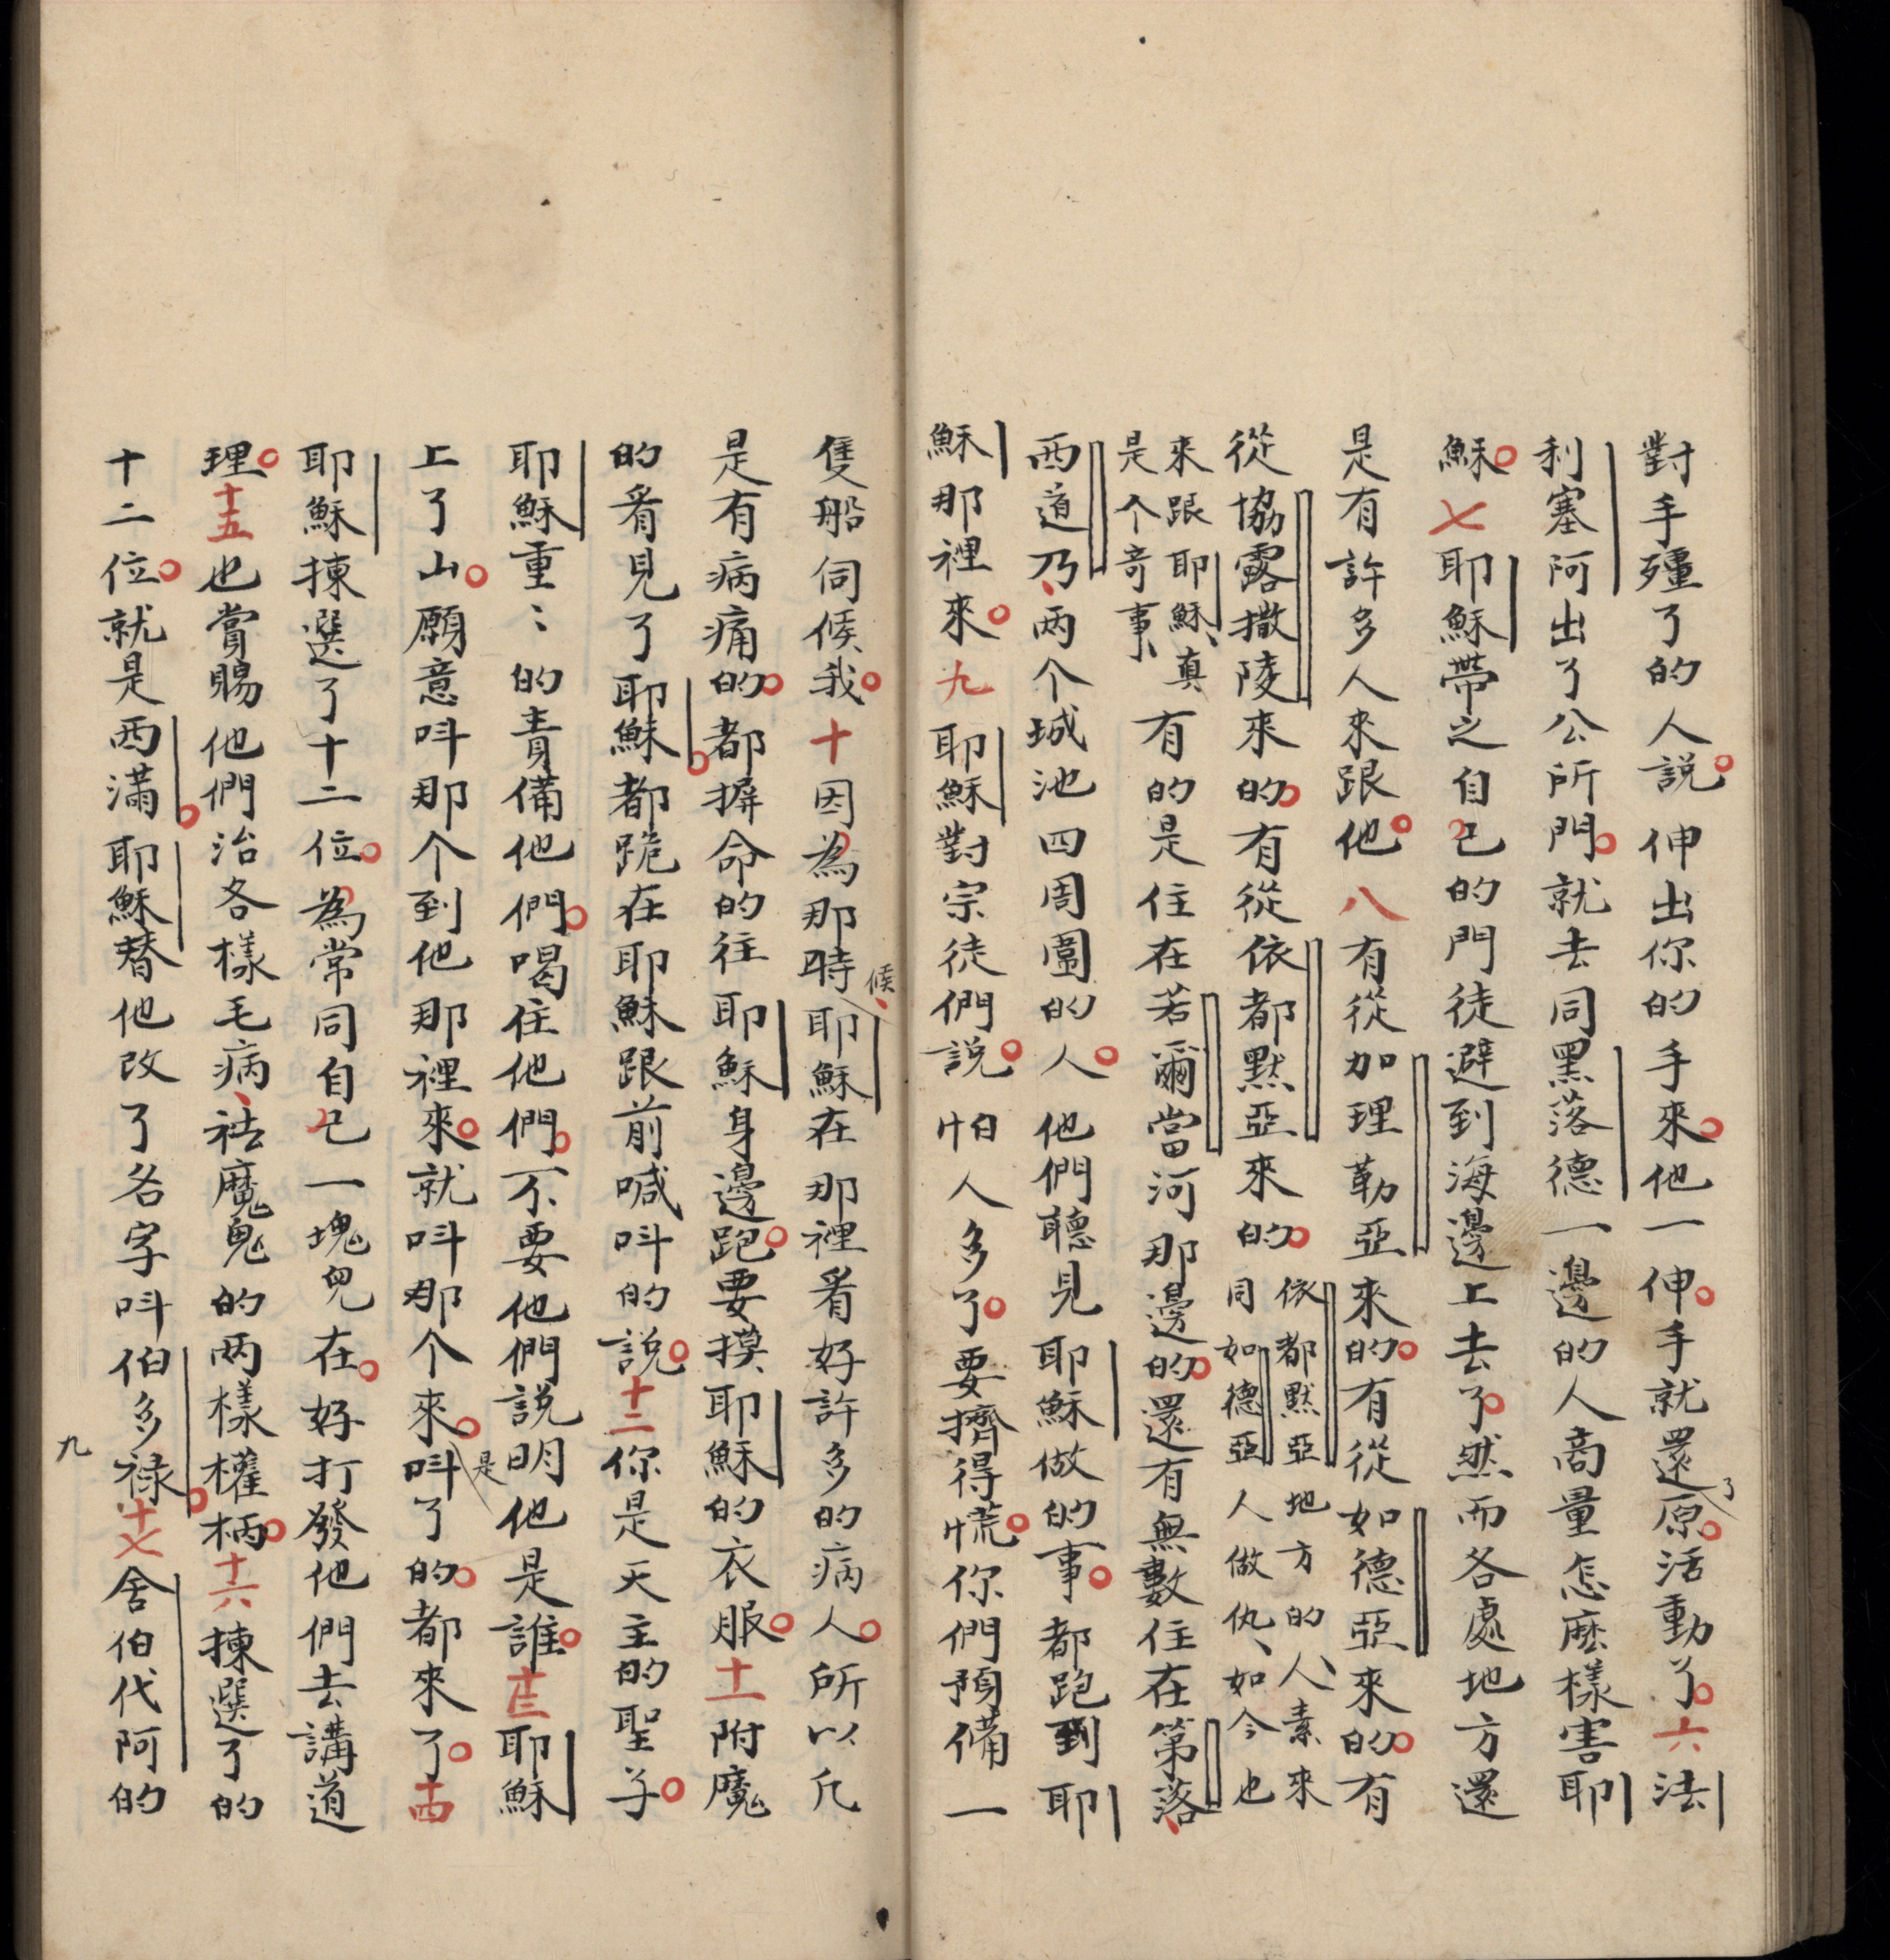 對手殭了的人說。伸出你的手來。他一伸。手就還原了。活動了。六法
利塞阿出了公所門。就去同黑落德一邊的人商量怎麽樣害耶
穌。七耶穌帶之自己的門徒避到海邊上去了。然而各處地方還
是有許多人來跟他。八有從加理勒亞來的。有從如德亞來的。有
從協露撒陵來的。有從依都默亞來的。依都默亞地方的人、素來
同如德亞人做仇、如今也
來跟耶穌、真
是个奇事、有的是住在若爾當河那邊的。還有無數住在第落、
西道乃、兩个城池四周圍的人。他們聽見耶穌做的事。都跑到耶
穌那裡來。九耶穌對宗徒們說。怕人多了。要擠得慌。你們預備一
隻船伺候我。十因為那時候、耶穌在那裡看好許多的病人。所以凡
是有病痛的。都摒命的往耶穌身邊跑。要摸、耶穌的衣服。十一附魔
的看見了耶穌。都跪在耶穌跟前喊呌的說。十二你是天主的聖子。
耶穌重〻的責備他們。喝住他們。不要他們說明他是誰。十三耶穌
上了山。願意呌那个到他那裡來。就呌那个來。是呌了的。都來了。十四
耶穌揀選了十二位。為常同自己一塊兒在。好打發他們去講道
理。十五也賞賜他們治各樣毛病、祛魔鬼的兩樣權柄。十六揀選了的
十二位。就是西滿。耶穌替他改了名字呌伯多祿。十七舍伯代阿的
九